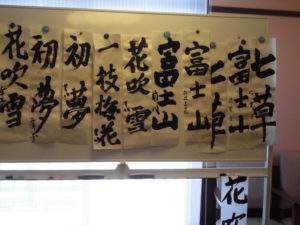 七草
富士山
七草
富士山
富士山
花吹雪
一枝梅花
初夢
初夢
花吹雪
花吹